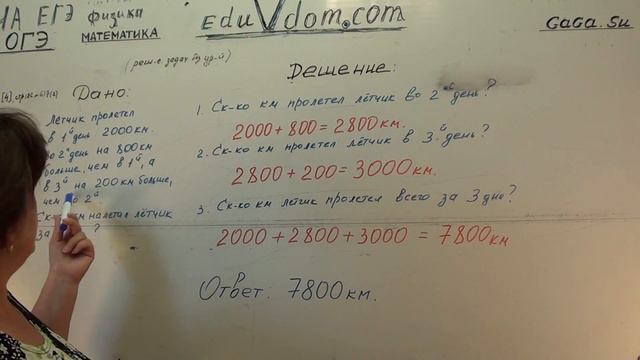 НА ЕГЭ физика
ОГЭ МАТЕМАТИКА
EduVdom.com
GaGa.Su
(реш-е задач по ур-й)
Дано:
Лётчик пролетел
в 1й день 2000 км.
во 2й день на 800 км
больше, чем в 1й, а
в 3й на 200 км больше,
чем во 2й
Ск-ко км налетал лётчик
за ?
Решение:
1. Ск-ко км пролетел лётчик во 2ой день?
2000 + 800 = 2800 км.
2. Ск-ко км пролетел лётчик в 3й день?
2800 + 200 = 3000 км.
3. Ск-ко км лётчик пролетел всего за 3 дня?
2000 + 2800 + 3000 = 7800 км
Ответ: 7800 км.